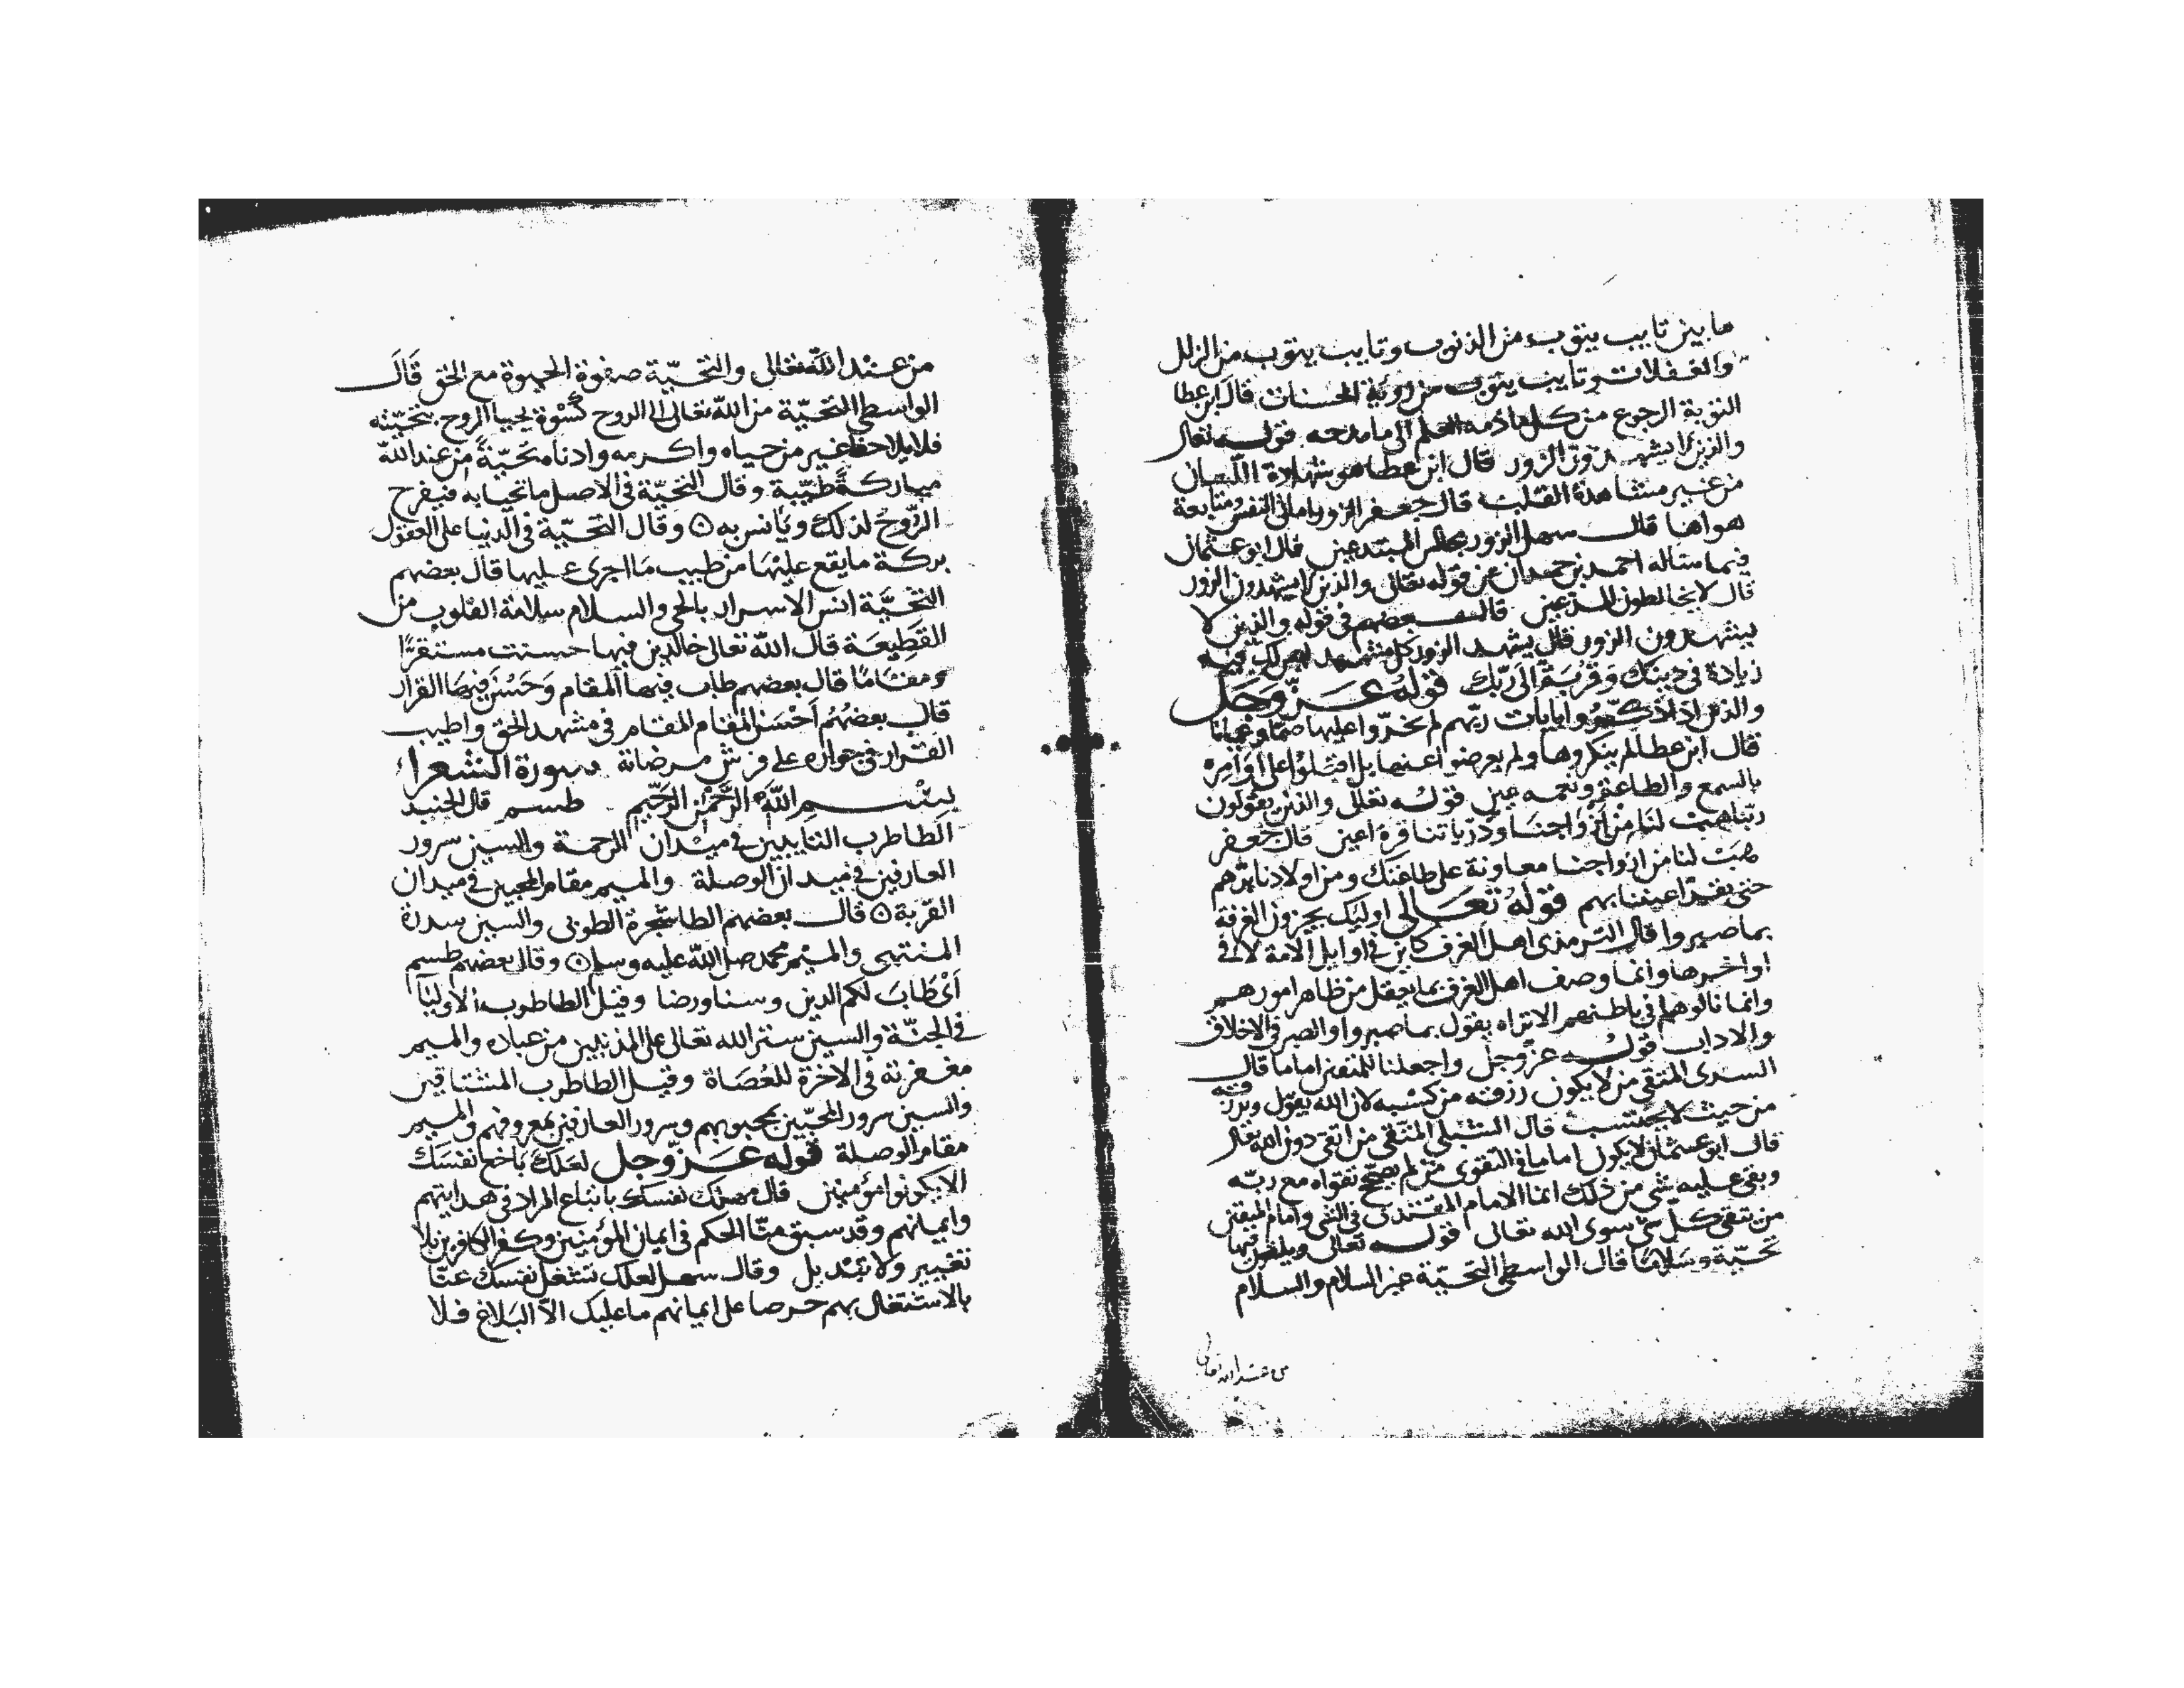 ما بين تايب يتوب من الذنوب وتايب يتوب من الزلل
والغفلات وتايب يتوب من روية الحسنات قال ابن عطا
التوبة الرجوع من كل ما ذمه العلم الى ما مدحه قوله تعالى
والذين لا يشهدون الزور قال ابن عطا هو شهادة اللسان
من غير مشاهدة القلب قال جعفر الزور اماني النفس ومتابعة
هواها قال سهل الزور مجالس المبتدعين قال ابو عثمان
فيما ساله احمد بن حمدان عن قوله تعالى والذين لا يشهدون الزور
قال لا يخالطون المدعين قال بعضهم في قوله والذين لا
يشهدون الزور قال يشهد الزور كل مشهد ليس لك فيه
زيادة في دينك وقربة الى ربك قوله عز وجل
والذين اذا ذكروا بايات ربهم لم يخروا عليها صما وعميانا
قال ابن عطا لم ينكروها ولم يعرضوا عنها بل اقبلوا على اوامره
بالسمع والطاعة ونعمه عين قوله تعالى والذين يقولون
ربنا هب لنا من ازواجنا وذرياتنا قرة اعين قال جعفر
هب لنا من ازواجنا معاونة على طاعتك ومن اولادنا برهم
حتى يقر اعيننا بهم قوله تعالى اوليك يجزون الغرفة
بما صبروا قال الترمذي اهل الغرف كاين في اوايل الامة لا في
اواخرها وانما وصف اهل الغرف بما يعقل من ظاهر امورهم
وانما نالوها في باطنهم الا تراه يقول بما صبروا والصبر في الاخلاق
والاداب قوله عز وجل واجعلنا للمتقين اماما قال
السدى المتقى من لا يكون رزقه من كسبه لان الله يقول ويرزقه
من حيث لا يحتسب قال الشبلي المتقى من اتقى دون الله تعالى
قال ابو عثمان لا يكون اماما في التقوى من لم يصحح تقواه مع ربه
وبقى عليه شي من ذلك انما الامام المقتدى في الشي وامام المتقين
من يتقى كل شي سوى الله تعالى قوله تعالى ويلقون فيها
تحية وسلاما قال الواسطي التحية عن السلام والسلام
من عند الله تعالى
من عند الله تعالى والتحية صفوة الحيوة مع الحق قال
الواسطي التحية من الله تعالى الى الروح كسوة يحيا الروح بتحيته
فلا يلاحظ غير من حياه واكرمه وادناه تحية من عند الله
مباركة طيبة وقال التحية في الاصل ما تحيا به فيفرح
الروح لذلك ويانس به وقال التحية في الدنيا على العقول
بركة ما يقع عليها من طيب ما اجرى عليها قال بعضهم
التحية انس الاسرار بالحي والسلام سلامة القلوب من
القطيعة قال الله تعالى خالدين فيها حسنت مستقرا
ومقاما قال بعضهم طاب فيها المقام وحسن فيها القرار
قال بعضهم احسن المقام المقام في مشهد الحق واطيب
القرار في جواره على فرش مرضاته سورة الشعرا
بسم الله الرحمن الرحيم طسم قال الجنيد
الطا طرب التايبين في ميدان الرحمة والسين سرور
العارفين في ميدان الوصلة والميم مقام المحبين في ميدان
القربة قال بعضهم الطا شجرة الطوبى والسين سدرة
المنتهى والميم محمد صلى الله عليه وسلم وقال بعضهم طسم
اى طاب لكم الدين وسنا ورضا وقيل الطا طوب الاوليا
في الجنة والسين ستر الله تعالى على المذنبين من عباده والميم
مغفرته في الاخرة للعصاة وقيل الطا طرب المشتاقين
والسين سرور المحبين بمحبوبهم وسرور العارفين بمعروفهم والميم
مقام الوصلة قوله عز وجل لعلك باخع نفسك
الا يكونوا مومنين قال مهلك نفسك باتباع المراد في هدايتهم
وايمانهم وقد سبق منا الحكم في ايمان المؤمنين وكفر الكافرين بلا
تغيير ولا تبديل وقال سهل لعلك تشغل نفسك عنا
بالاشتغال بهم حرصا على ايمانهم ما عليك الا البلاغ فلا